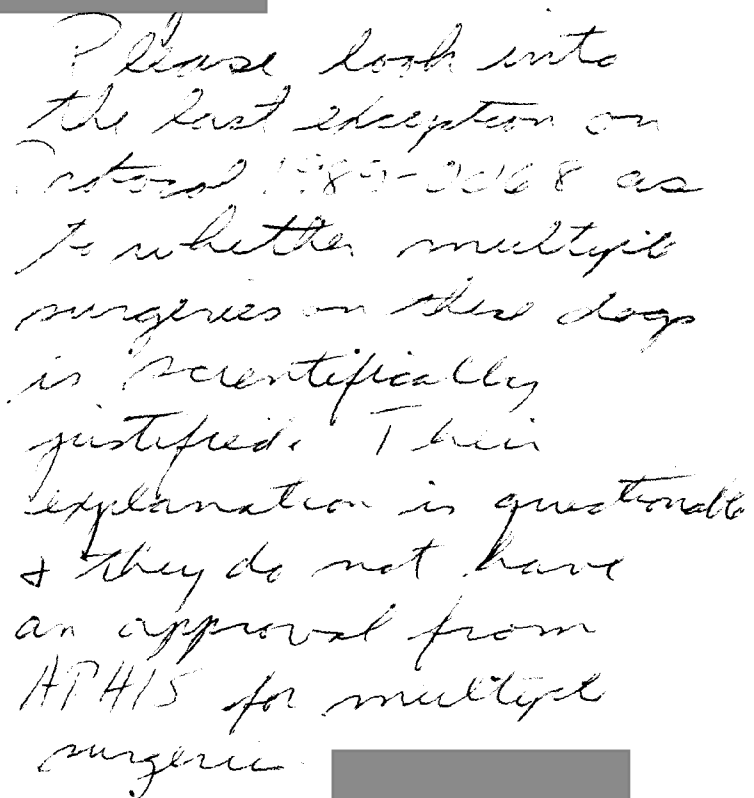 Please look into
the last exception on
Protocol as
to whether multiple
surgeries on these dogs
is scientifically
justified. Their
explanation is questionable
& they do not have
an approval from
APHIS for multiple
surgeries